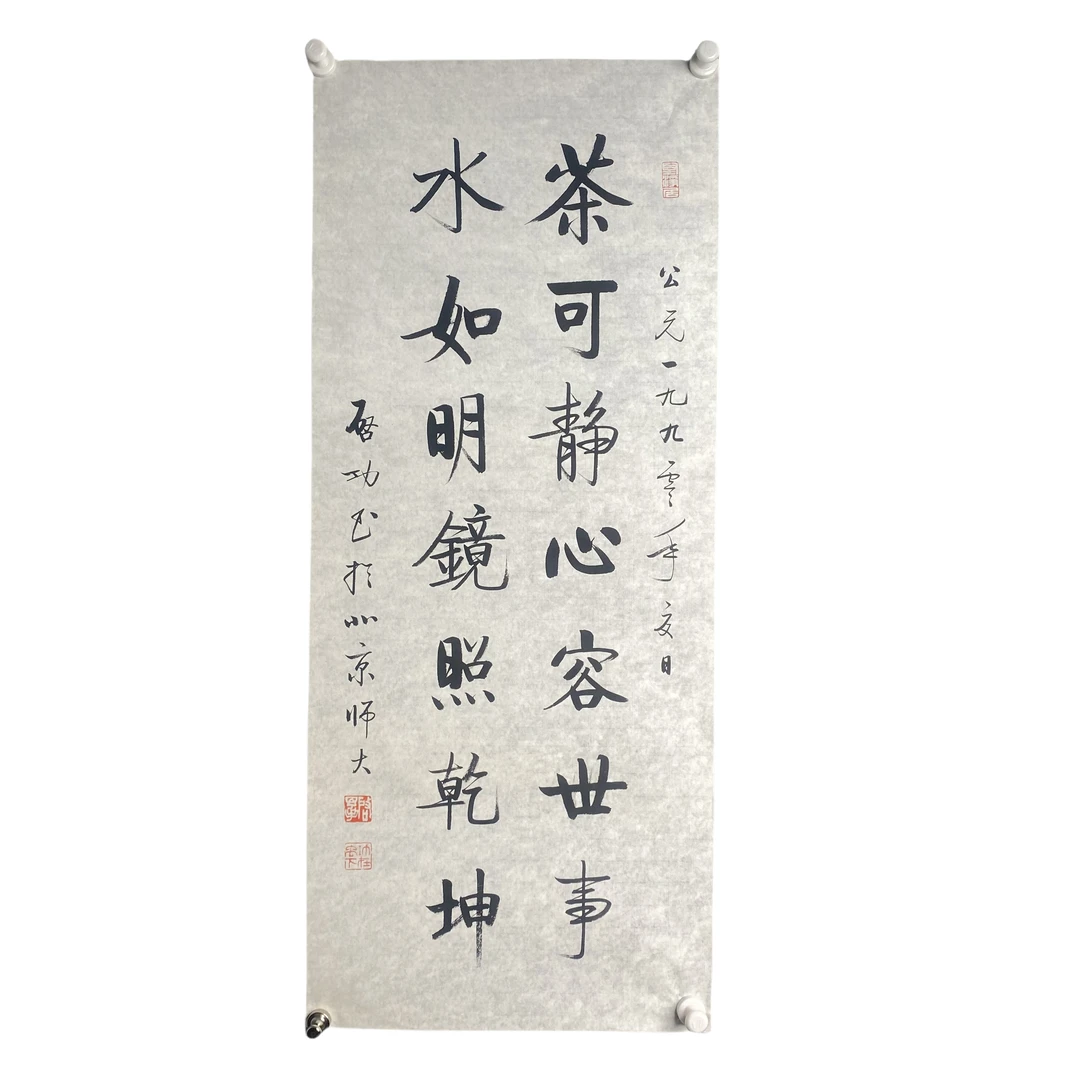 公元一九九零年夏日
茶可静心容世事
水如明鏡照乾坤
啓功书於北京师大